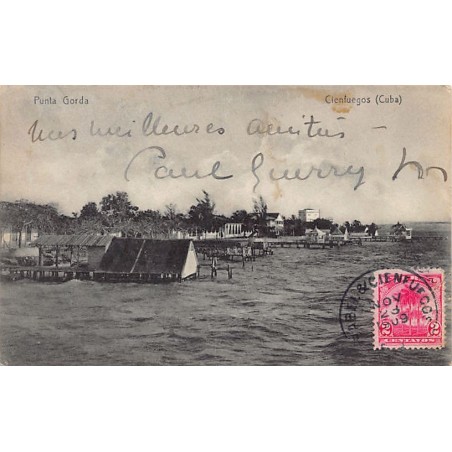 Punta Gorda Cienfuegos (Cuba)
nos meilleures amitiés -
Paul Guerry
CIENFUEGOS
NOV
2
CENTAVOS
2